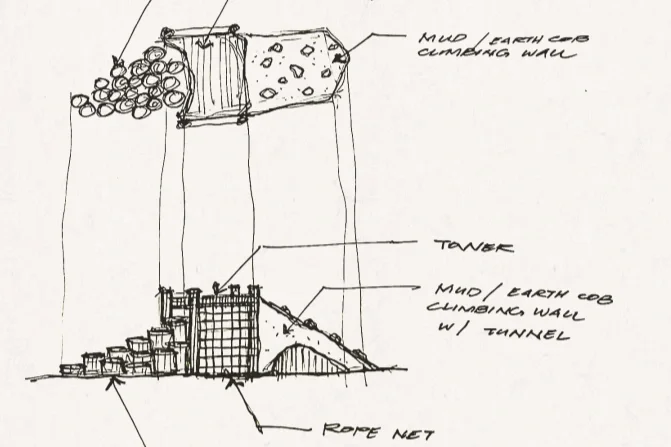 MUD / EARTH COB
CLIMBING WALL
TOWER
MUD / EARTH COB
CLIMBING WALL
W/ TUNNEL
ROPE NET